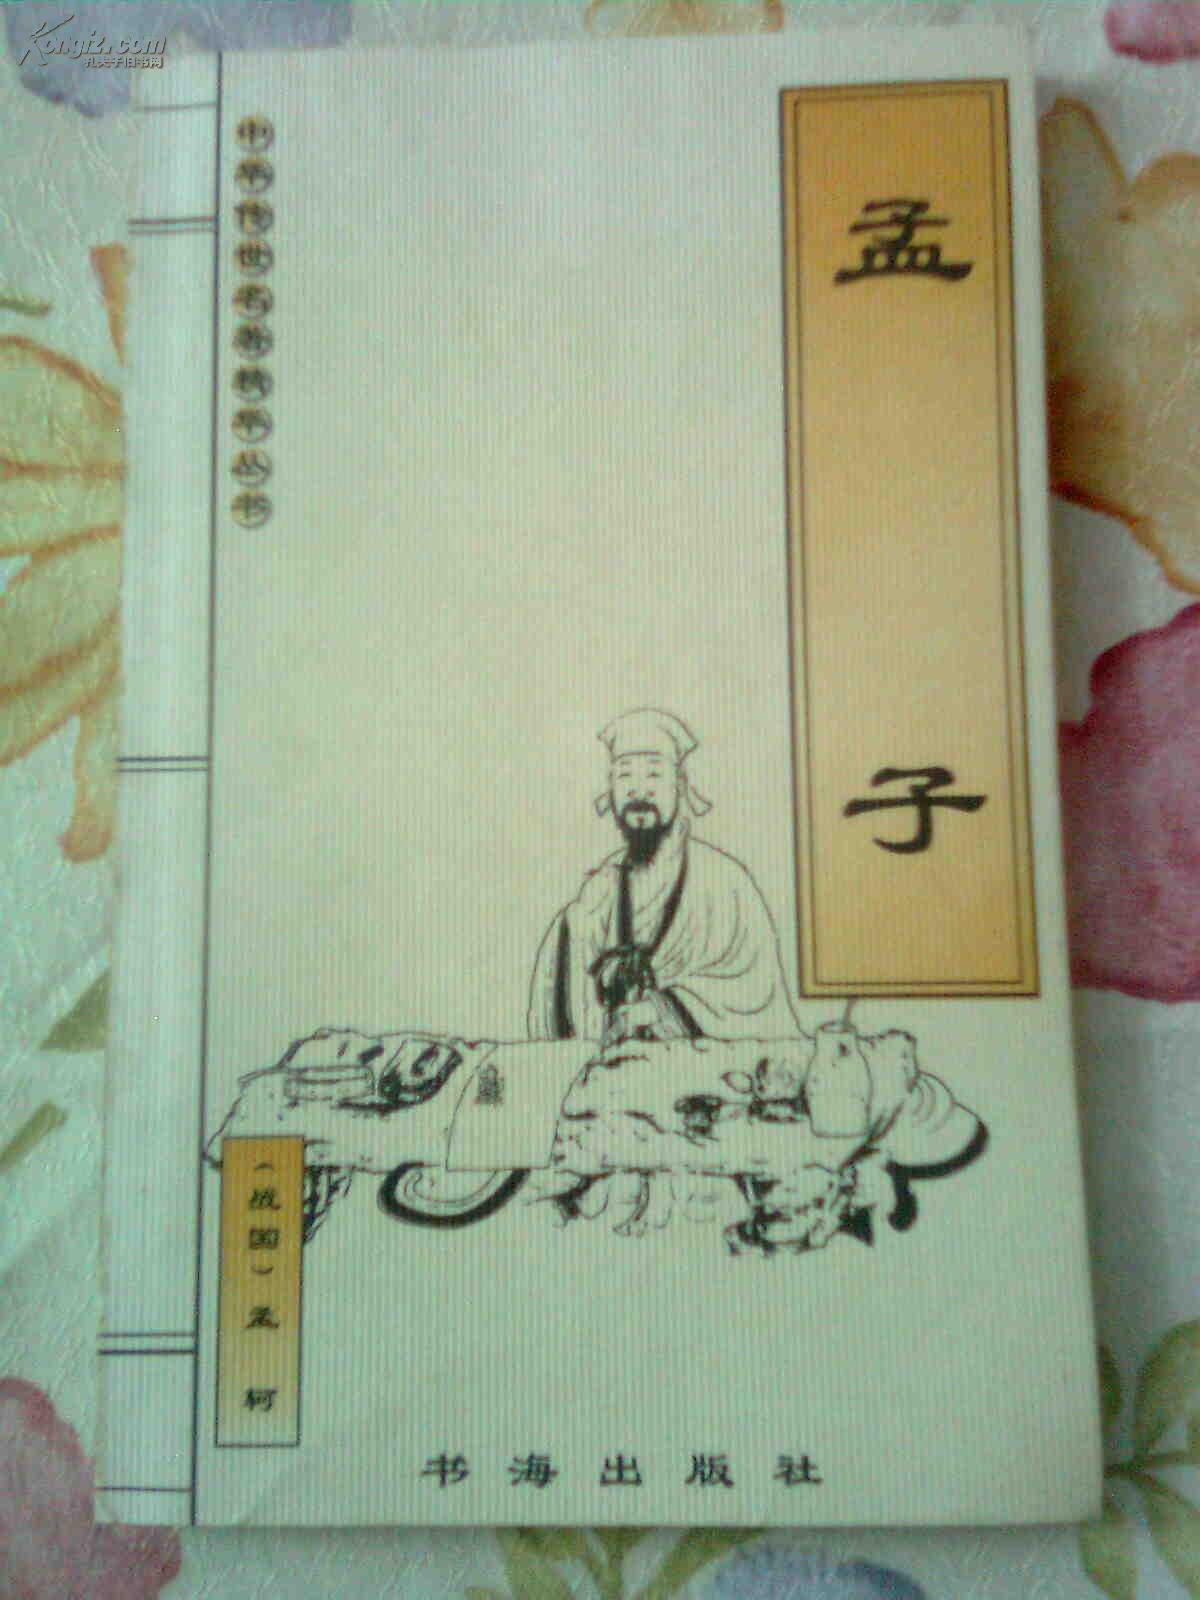 Kongfz.com
孔夫子旧书网
中华传世名著精华丛书
孟子
(战国)孟轲
书海出版社